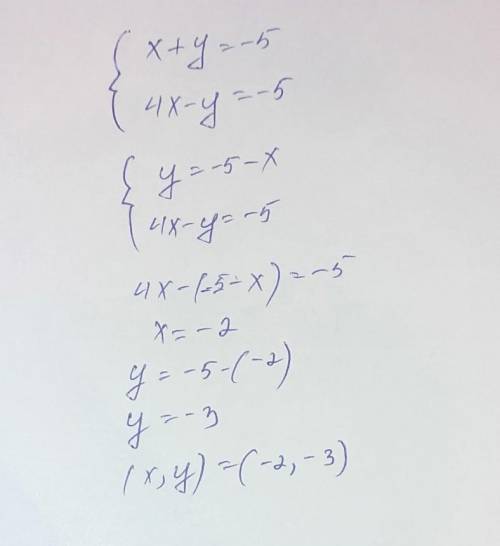 x+y=-5
4x-y=-5
y=-5-x
4x-y=-5
4x-(-5-x)=-5
x=-2
y=-5-(-2)
y=-3
(x,y)=(-2,-3)